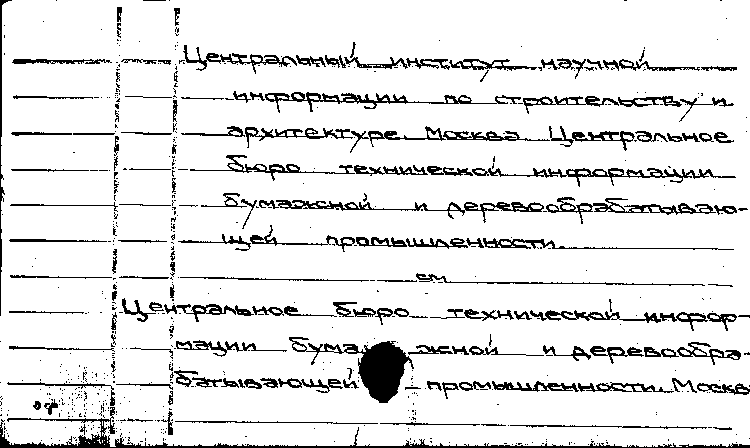 Центральный институт научной
информации по строительству и
архитектуре. Москва Центральное
бюро технической информации
бумажной и деревообрабатываю-
щей промышленности.
см
Центральное бюро технической инфор-
мации бума жной и деревообра-
батывающей промышленности. Москва